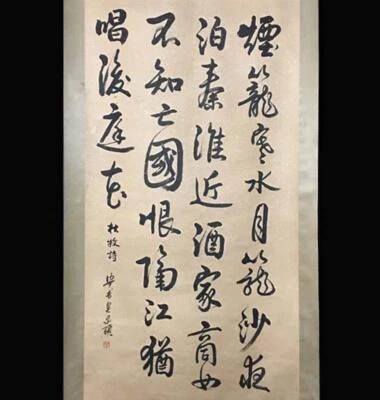 煙籠寒水月籠沙夜
泊秦淮近酒家商女
不知亡國恨隔江猶
唱後庭花
杜牧詩